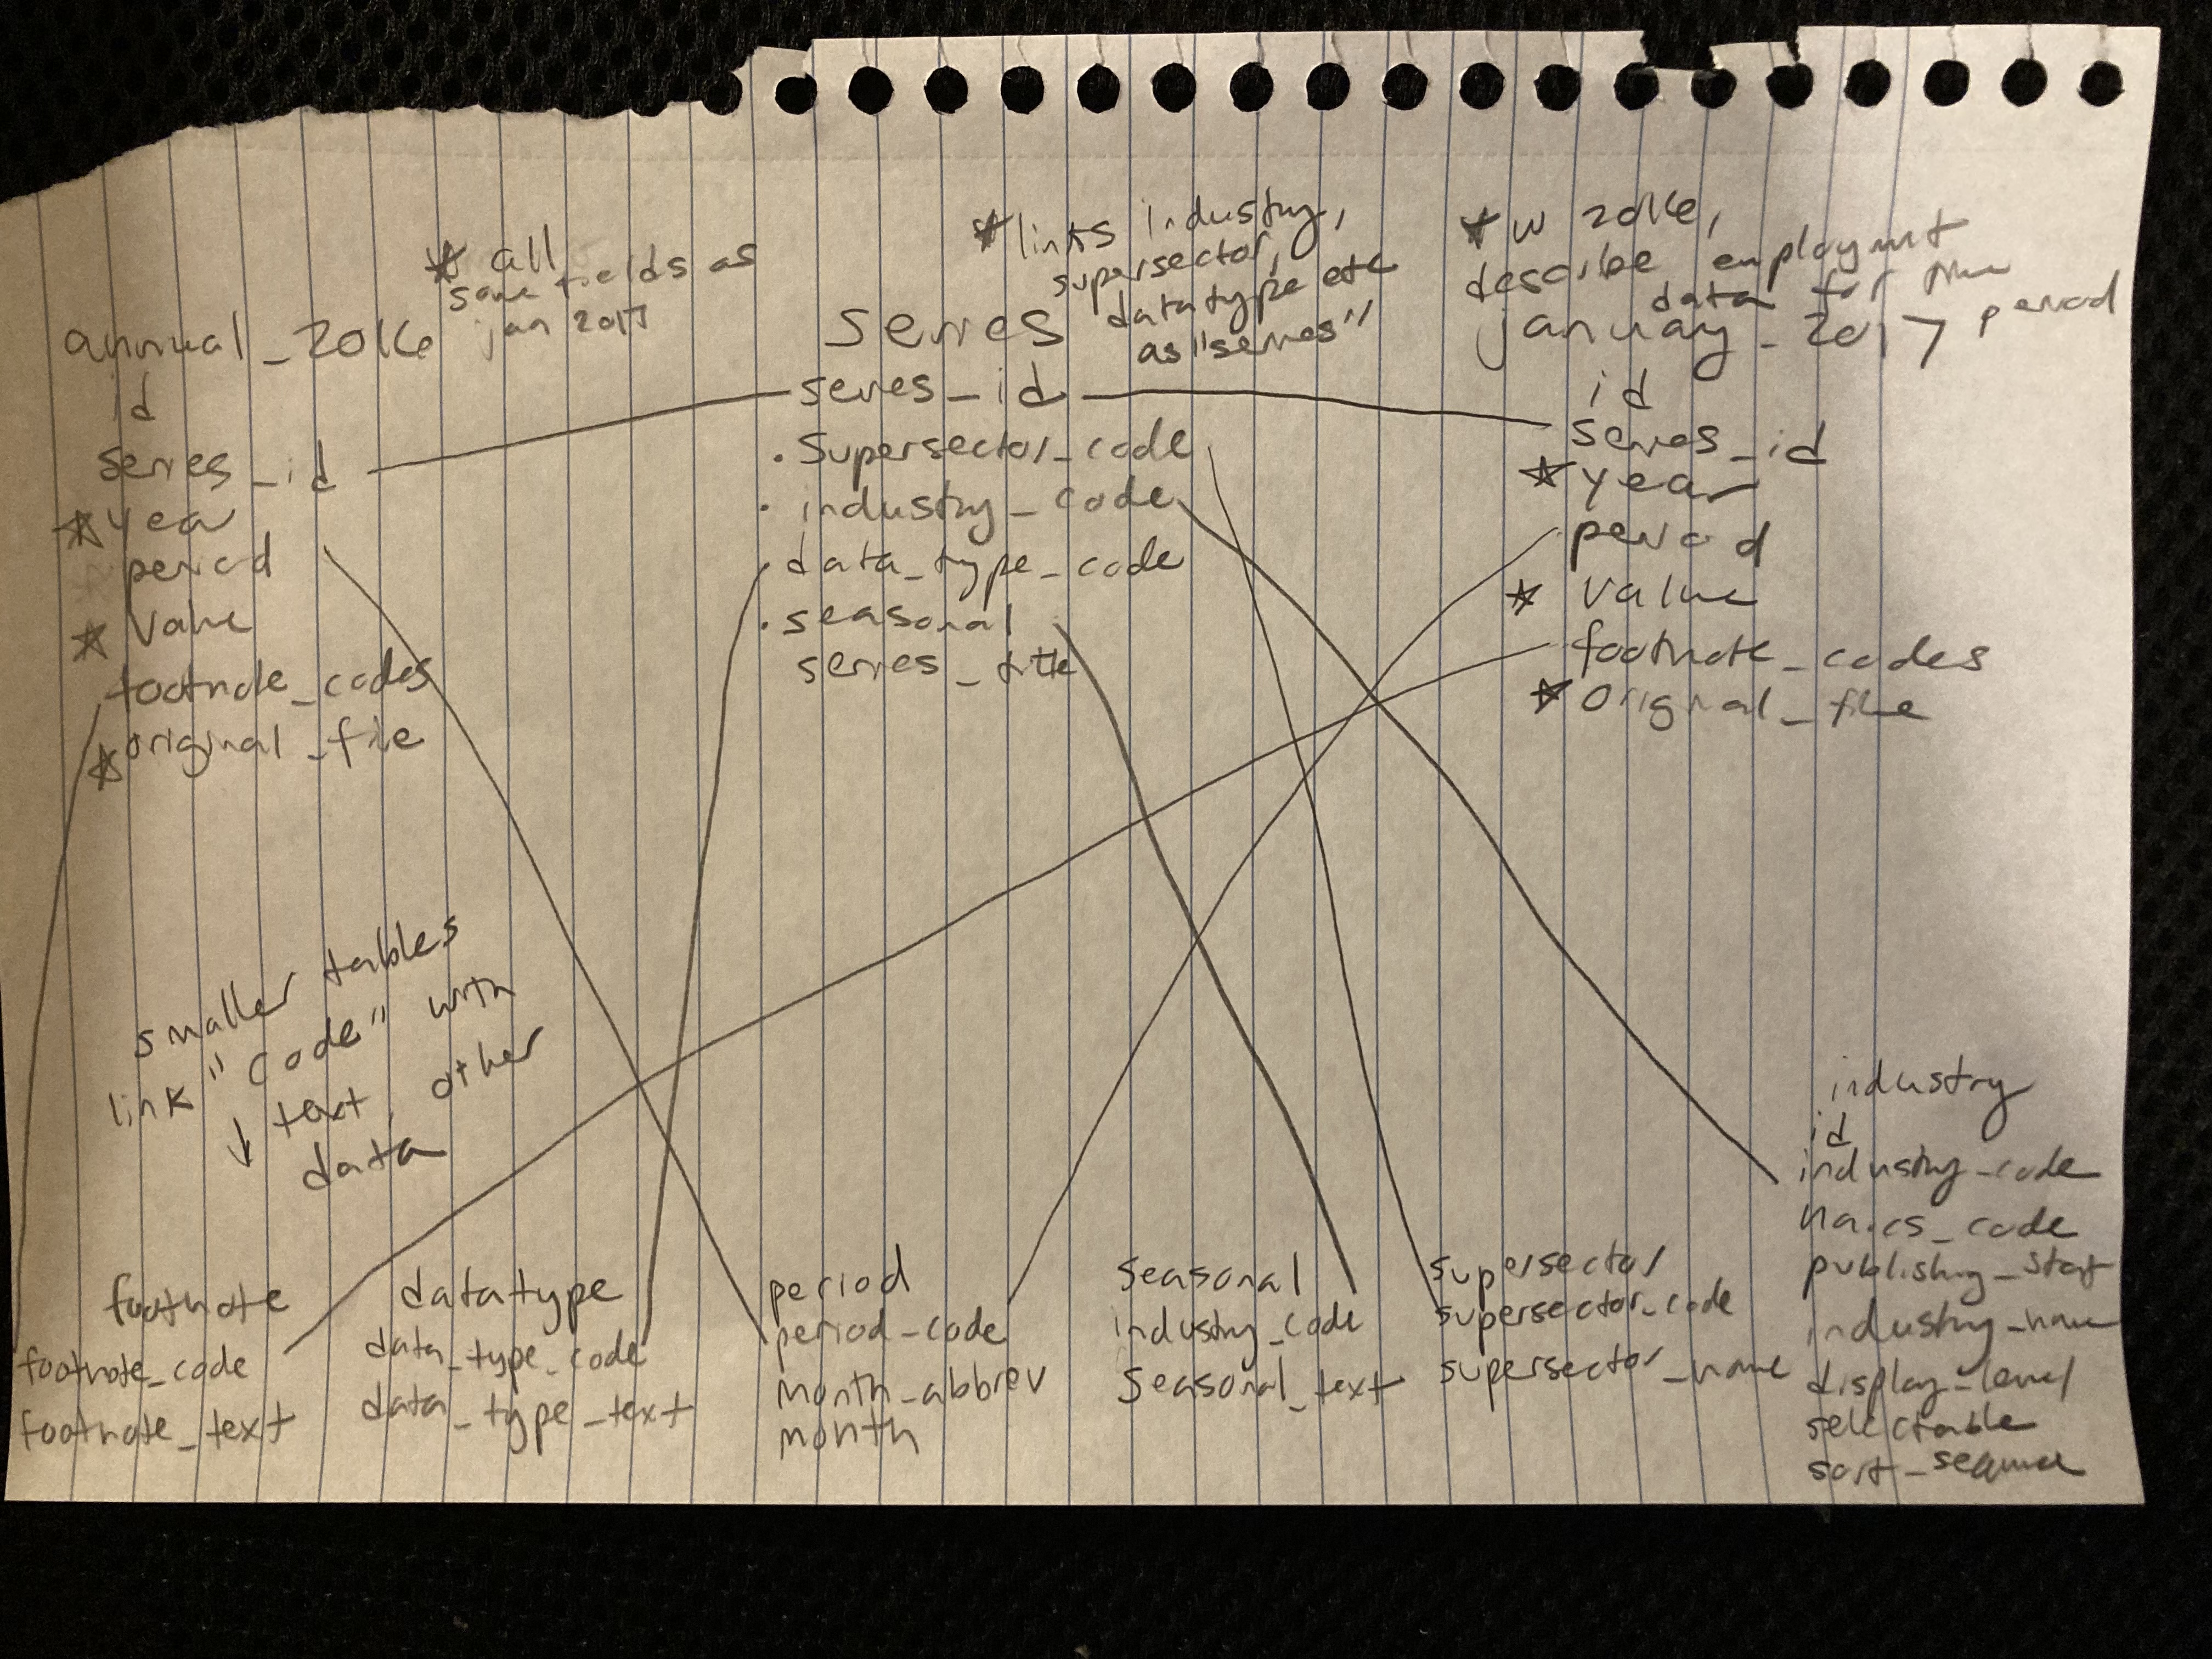 * all
same fields as
jan 2017
annual_2016
id
series_id
* year
period
* value
footnote_codes
* original_file
* links industry,
supersector,
datatype etc
as "series"
series
series_id
. supersector_code
. industry_code
. data_type_code
. seasonal
series_title
* w 2016,
describe employment
data for the
period
january_2017
id
series_id
* year
period
* value
footnote_codes
* original_file
smaller tables
link "code" with
↓ text, other
data
footnote
footnote_code
footnote_text
datatype
data_type_code
data_type_text
period
period_code
month_abbrev
month
seasonal
industry_code
seasonal_text
supersector
supersector_code
supersector_name
industry
id
industry_code
naics_code
publishing_stat
industry_name
display_level
selectable
sort_sequence